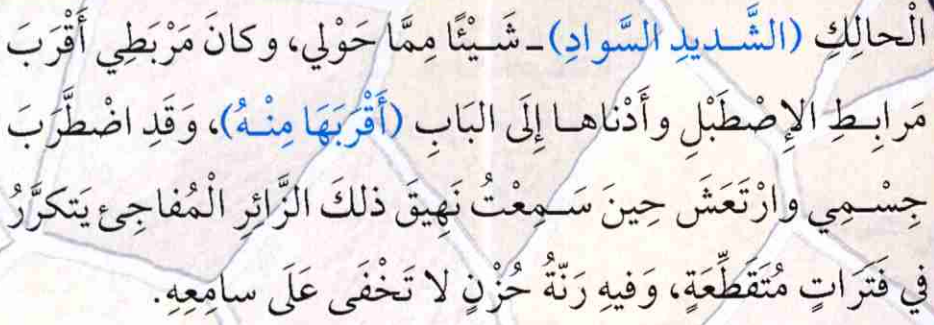 الْحالِكِ (الشَّدِيدِ السَّوادِ) - شَيْئًا مِمَّا حَوْلي، وكانَ مَرْبَطِي أَقْرَبَ
مَرابِطِ الإِصْطَبْلِ وأَدْناها إِلَى البَابِ (أَقْرَبَهَا مِنْهُ)، وَقَدِ اضْطَّرَبَ
جِسْمِي وارْتَعَشَ حِينَ سَمِعْتُ نَهِيقَ ذلكَ الزَّائِرِ الْمُفاجِئِ يَتكرَّرُ
في فَتَراتٍ مُتَقَطِّعَةٍ، وَفيهِ رَنَّةُ حُزْنٍ لا تَخْفَى عَلَى سامِعِهِ.